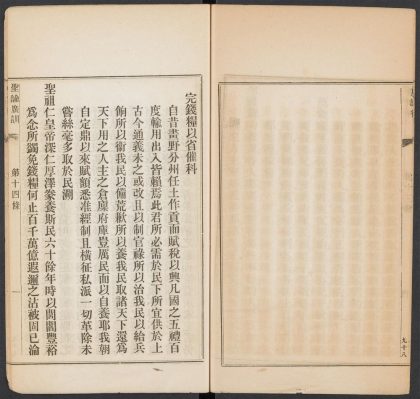 完錢糧以省催科
自昔畫野分州任土作貢而賦稅以興凡國之五禮百
度輸用出入皆賴焉此君所必需於民下所宜供於上
古今通義未之或改且以制官祿所以治我民以給兵
餉所以衛我民以備荒歉所以養我民取諸天下還為
天下用之人主之倉廩府庫豈厲民而以自養耶我朝
自定鼎以來賦額悉准經制且橫征私派一切革除未
嘗絲毫多取於民溯
聖祖仁皇帝深仁厚澤豢養斯民六十餘年時以閭閻豐裕
為念所蠲免錢糧何止百千萬億遐邇之沾被固已淪
聖諭廣訓
第十四條
九十八